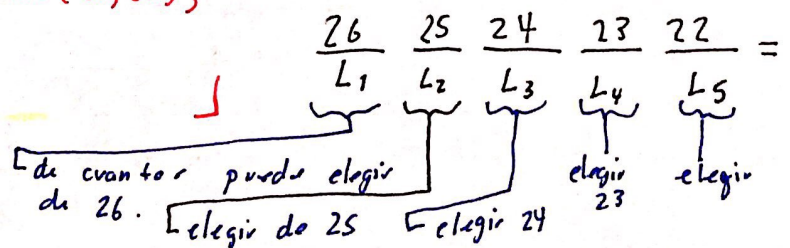 26 25 24 23 22 =
L1 L2 L3 L4 L5
de cuantos puedo elegir
de 26.
elegir de 25
elegir 24
elegir
23
elegir